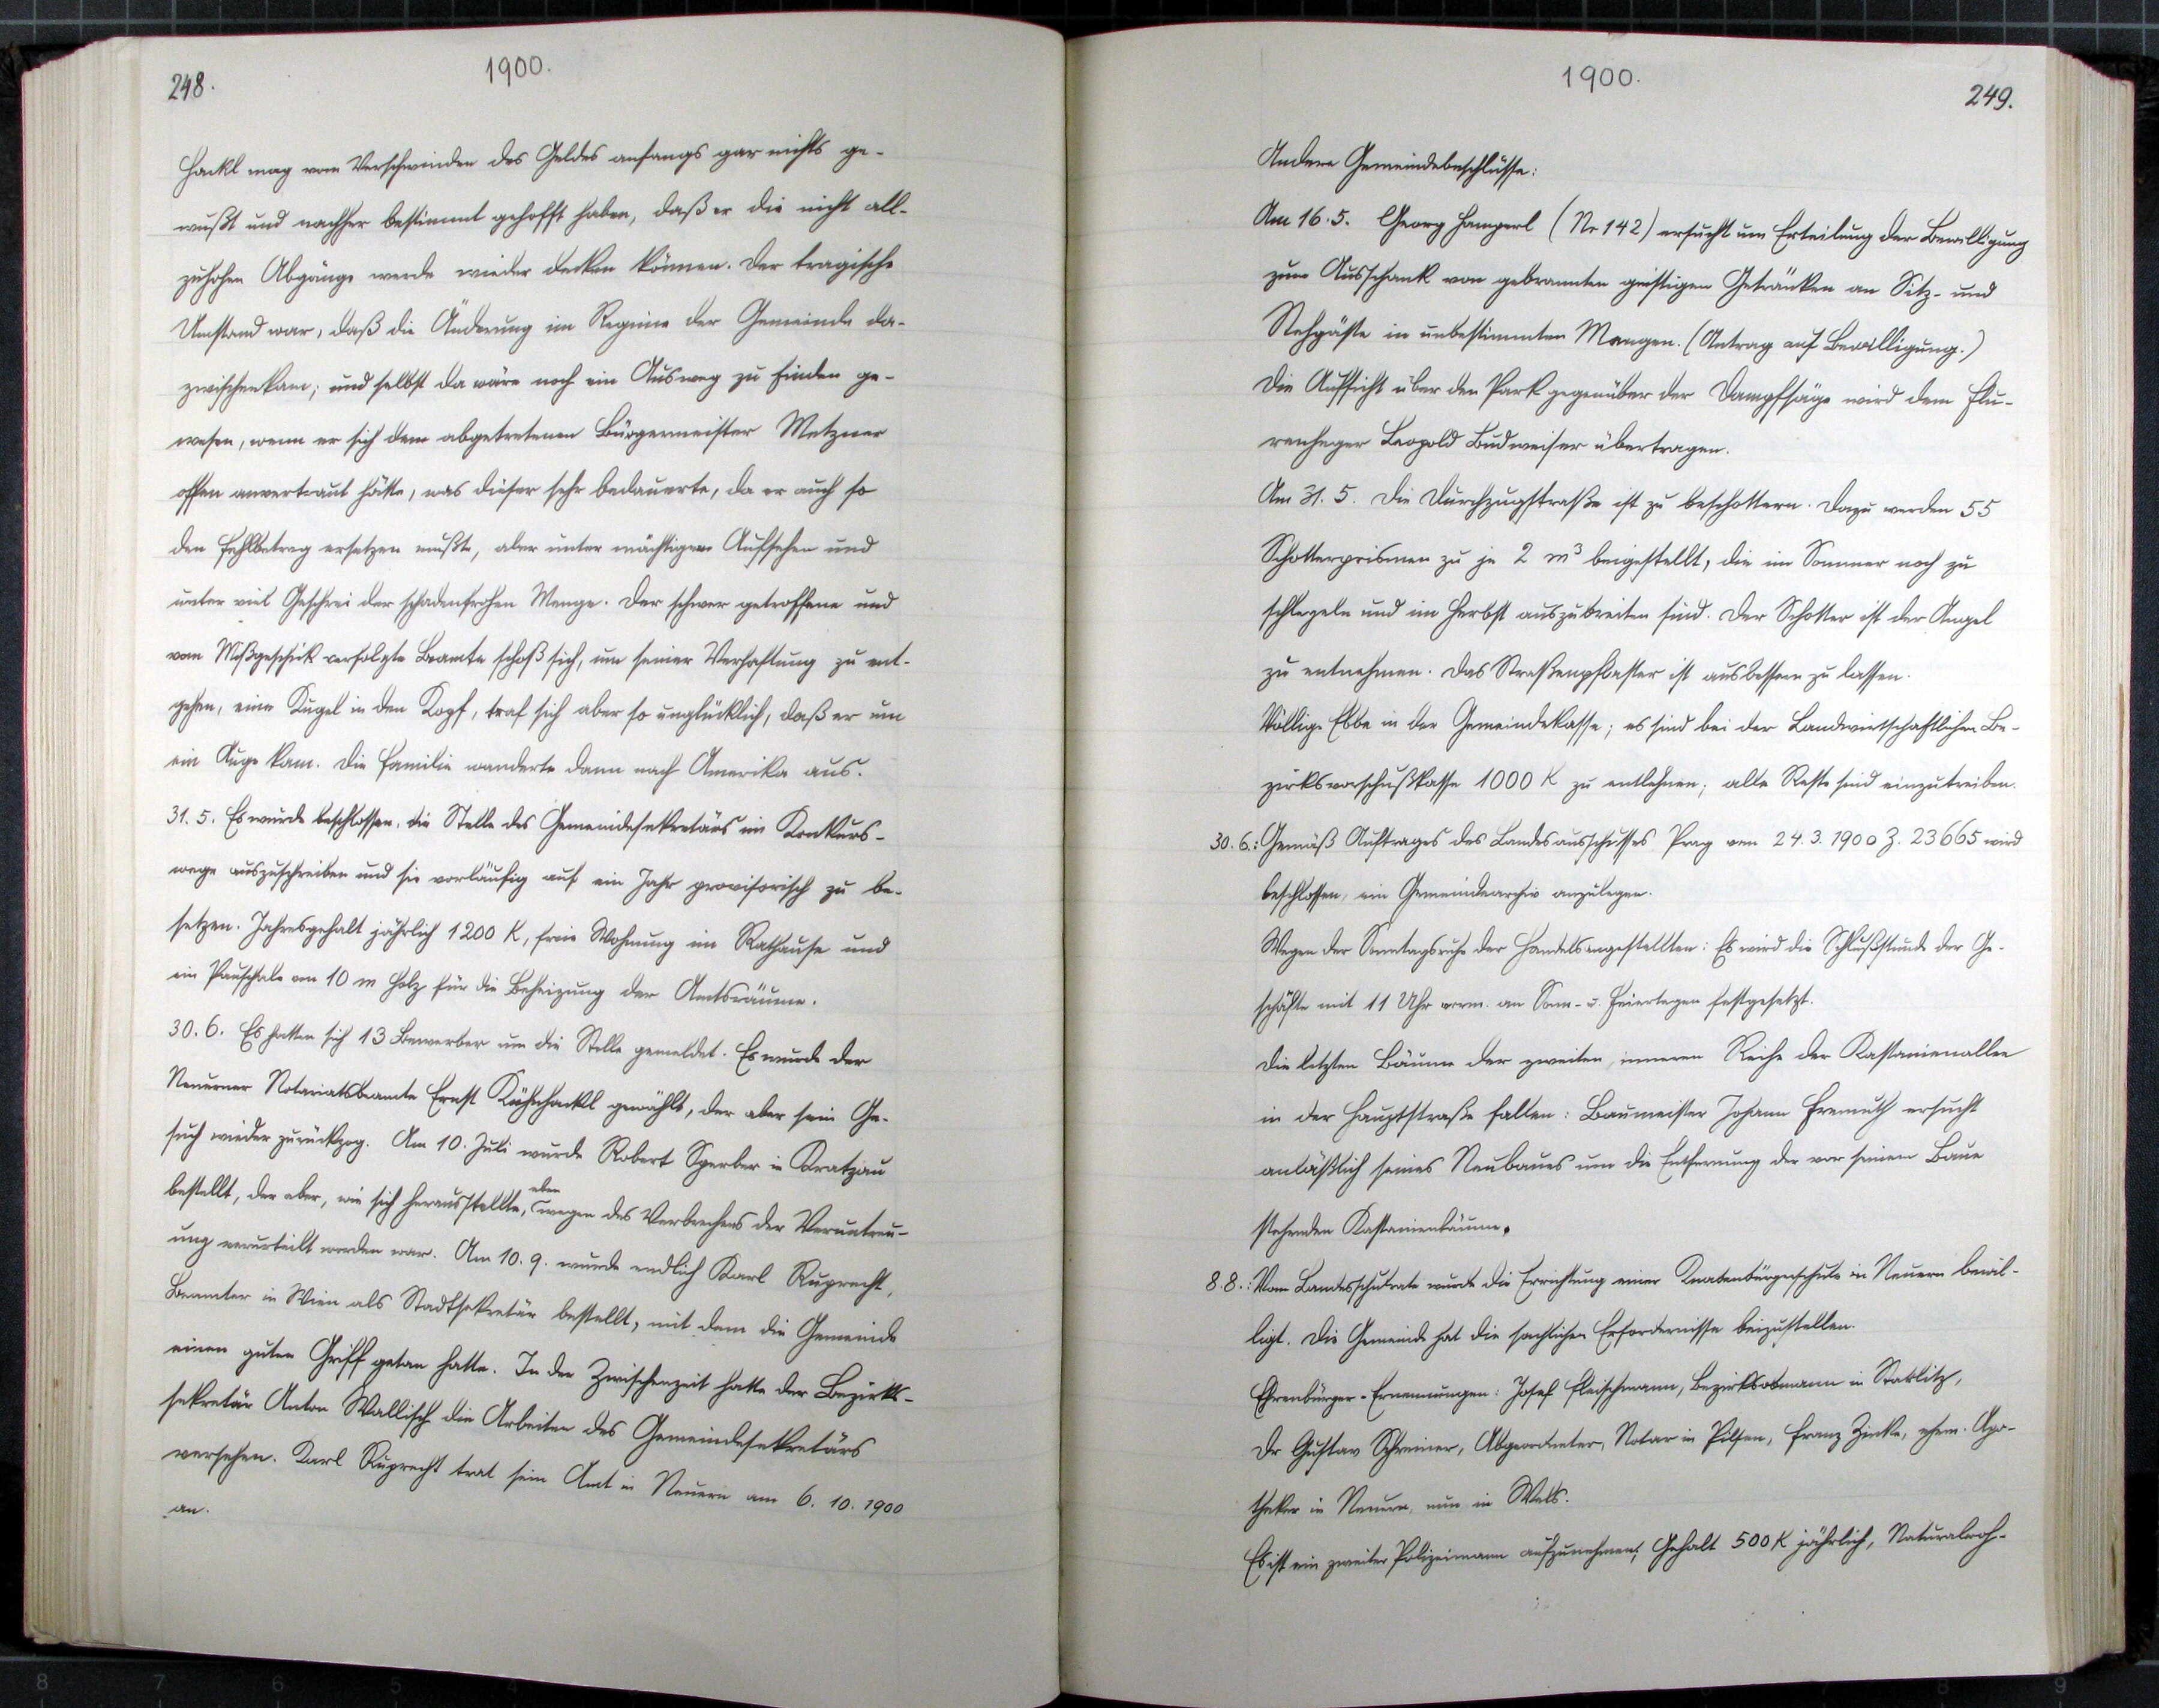 248.
1900.
Hackl mag vom Verschwinden des Geldes anfangs gar nichts ge-
wußt und nachher bestimmt gehofft haben, daß er die nicht all-
zuhohen Abgänge werde wieder decken können. Der tragische
Umstand war, daß die Änderung im Regime der Gemeinde da-
zwischenkam; und selbst da wäre noch ein Ausweg zu finden ge-
wesen, wenn er sich dem abgetretenen Bürgermeister Metzner
offen anvertraut hätte, was dieser sehr bedauerte, da er auch so
den Fehlbetrag ersetzen mußte, aber unter mächtigem Aufsehen und
unter viel Geschrei der schadenfrohen Menge. Der schwer getroffene und
vom Mißgeschick verfolgte Beamte schoß sich, um seiner Verhaftung zu ent-
gehen, eine Kugel in den Kopf, traf sich aber so unglücklich, daß er um
ein Auge kam. Die Familie wanderte dann nach Amerika aus.
31. 5. Es wurde beschlossen, die Stelle des Gemeindesekretärs im Konkurs-
wege auszuschreiben und sie vorläufig auf ein Jahr provisorisch zu be-
setzen. Jahresgehalt jährlich 1200 K, freie Wohnung im Rathause und
ein Pauschale von 10 m Holz für die Beheizung der Amtsräume.
30. 6. Es hatten sich 13 Bewerber um die Stelle gemeldet. Es wurde der
Neuerner Notariatsbeamte Ernst Kühhackl gewählt, der aber sein Ge-
such wieder zurückzog. Am 10. Juli wurde Robert Sperber in Kratzau
bestellt, der aber, wie sich herausstellte, eben wegen des Verbrechens der Veruntreu-
ung verurteilt worden war. Am 10. 9. wurde endlich Karl Ruprecht,
Beamter in Wien als Stadtsekretär bestellt, mit dem die Gemeinde
einen guten Griff getan hatte. In der Zwischenzeit hatte der Bezirks-
sekretär Anton Wallisch die Arbeiten des Gemeindesekretärs
versehen. Karl Ruprecht trat sein Amt in Neuern am 6. 10. 1900
an.
1900.
249.
Andere Gemeindebeschlüsse:
Am 16. 5. Georg Hamperl (Nr 142) ersucht um Erteilung der Bewilligung
zum Ausschank von gebrannten geistigen Getränken an Sitz- und
Stehgäste in unbestimmten Mengen. (Antrag auf Bewilligung.)
Die Aufsicht über den Park gegenüber der Dampfsäge wird dem Flu-
renheger Leopold Budweiser übertragen.
Am 31. 5. Die Durchzugstraße ist zu beschottern. Dazu werden 55
Schotterprismen zu je 2 m³ beigestellt, die im Sommer noch zu
schlegeln und im Herbst auszubreiten sind. Der Schotter ist der Angel
zu entnehmen. Das Straßenpflaster ist ausbessern zu lassen.
Völlige Ebbe in der Gemeindekasse; es sind bei der Landwirtschaftlichen Be-
zirksvorschußkasse 1000 K zu entlehnen; alte Reste sind einzutreiben.
30. 6.: Gemäß Auftrages des Landesausschusses Prag vom 24. 3. 1900 Z. 23665 wird
beschlossen, ein Gemeindearchiv anzulegen.
Wegen der Sonntagsruhe der Handelsangestellten: Es wird die Schlußstunde der Ge-
schäfte mit 11 Uhr vorm. an Sonn- u. Feiertagen festgesetzt.
Die letzten Bäume der zweiten, inneren Reihe der Kastanienallee
in der Hauptstraße fallen: Baumeister Johann Fremuth ersucht
anläßlich seines Neubaues um die Entfernung der vor seinem Baue
stehenden Kastanienbäume.
8. 8.: Vom Landesschulrate wurde die Errichtung einer Knabenbürgerschule in Neuern bewil-
ligt. Die Gemeinde hat die sachlichen Erfordernisse beizustellen.
Ehrenbürger-Ernennungen: Josef Fleischmann, Bezirksobmann in Stablitz,
Dr Gustav Schreiner, Abgeordneter, Notar in Pilsen, Franz Zinke, ehem. Apo-
theker in Neuern, nun in Wels.
Es ist ein zweiter Polizeimann aufzunehmen; Gehalt 500 K jährlich, Naturalwoh-